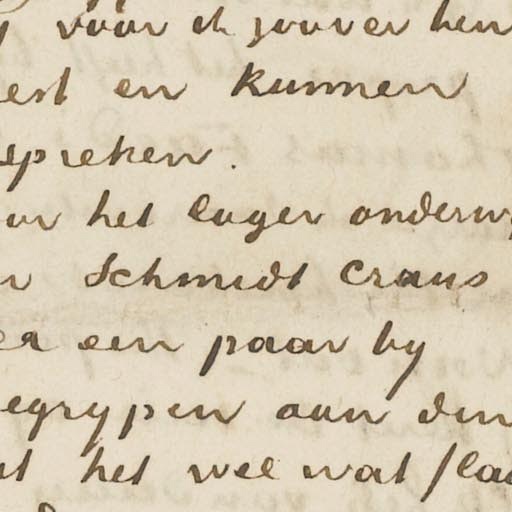 voor ik zoover hen
est en kunnen
spreken.
ur het lager onderwy
n Schmidt Crans
ea een paar by
egrypen aan den
at het wel wat /laa